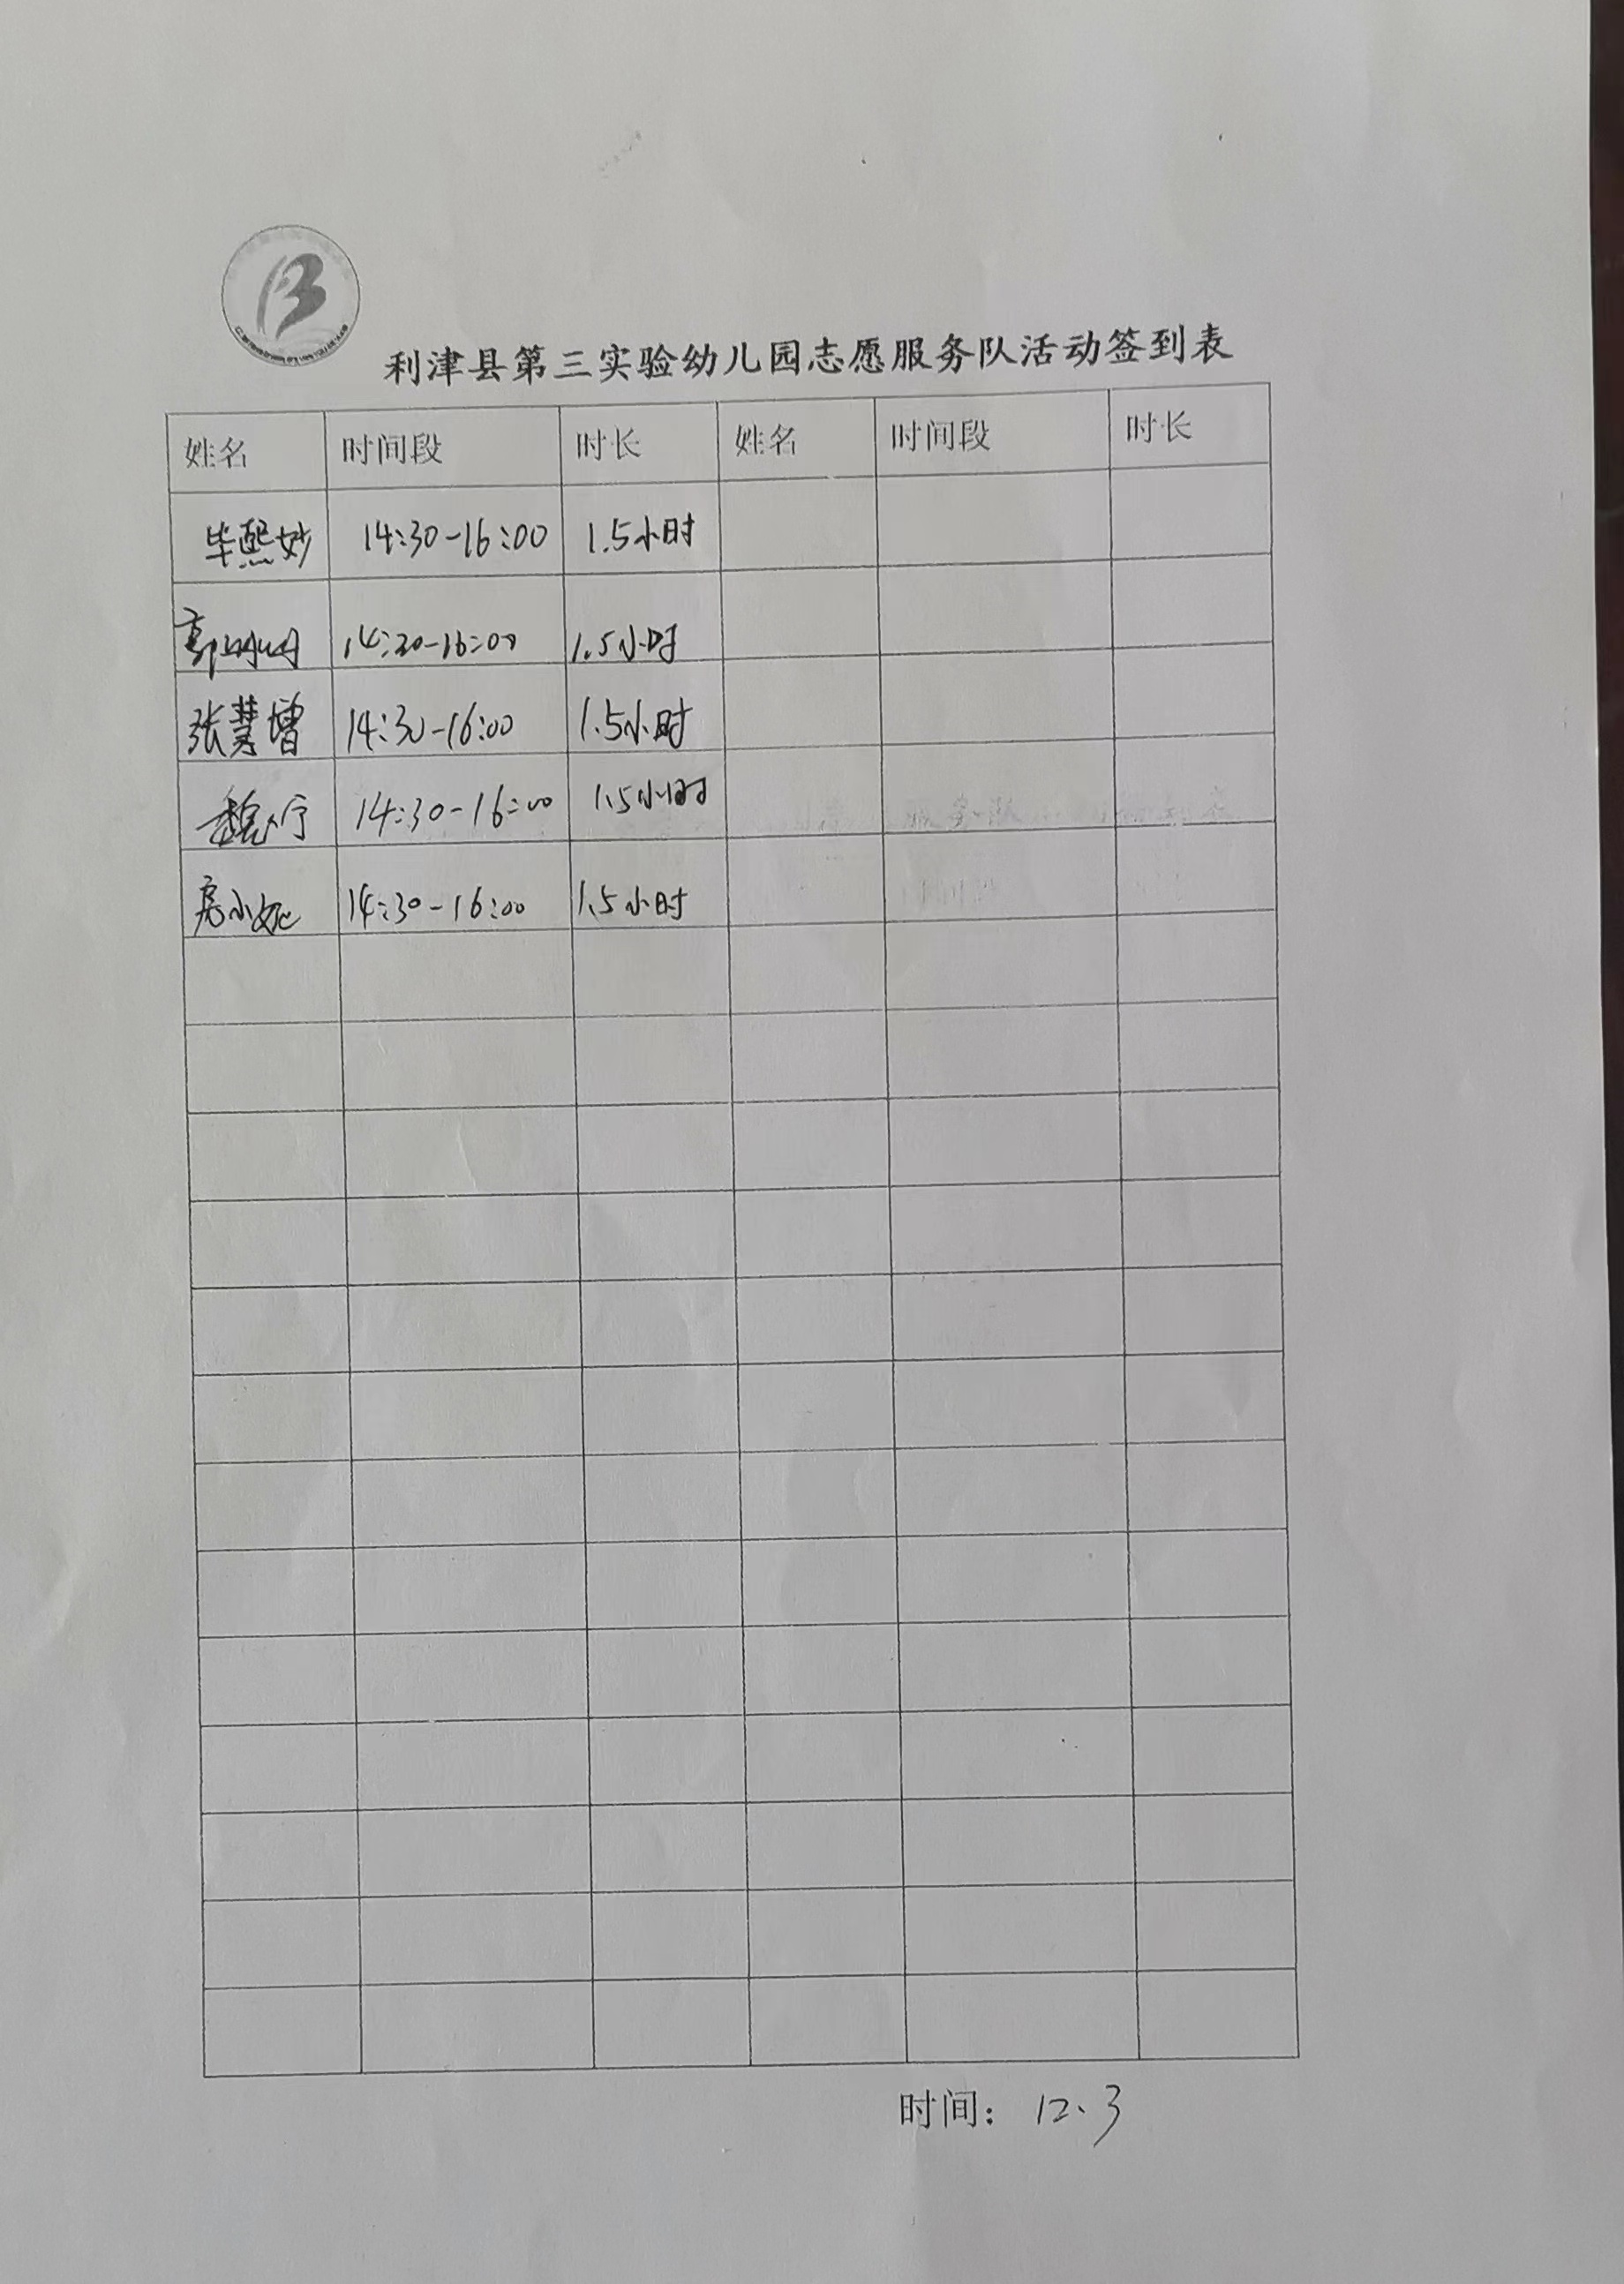 利津县第三实验幼儿园志愿服务队活动签到表
姓名 时间段 时长 姓名 时间段 时长
毕熙妙 14:30-16:00 1.5小时
14:30-16:00 1.5小时
张慧增 14:30-16:00 1.5小时
魏宁 14:30-16:00 1.5小时
房小妮 14:30-16:00 1.5小时
时间: 12、3